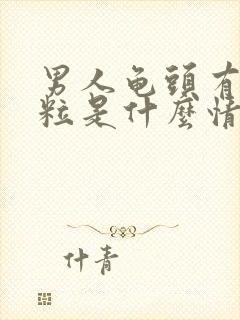 男人龟頭有
粒是什麼情
什青